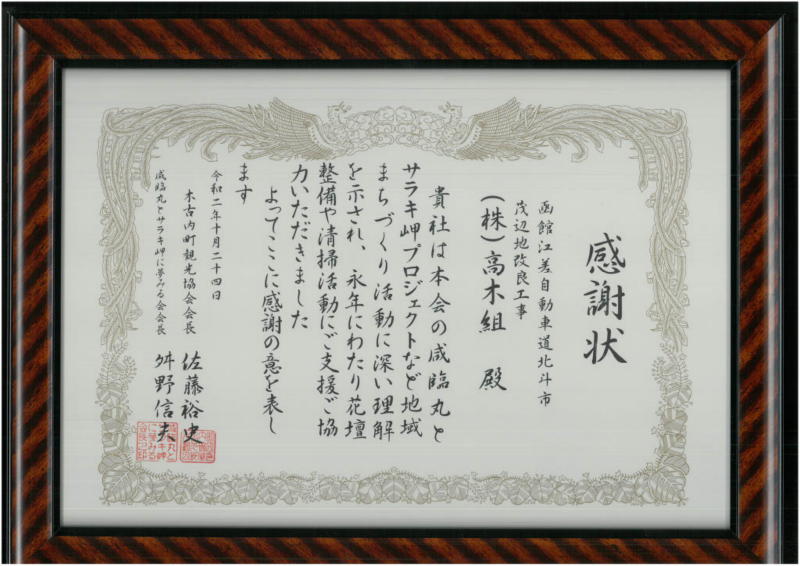 感謝状
函館江差自動車道北斗市
茂辺地改良工事
(株)高木組 殿
貴社は本会の咸臨丸と
サラキ岬プロジェクトなど地域
まちづくり活動に深い理解
を示され、永年にわたり花壇
整備や清掃活動にご支援ご協
力いただきました
よってここに感謝の意を表し
ます
令和二年十月二十四日
木古内町観光協会会長
佐藤裕史
咸臨丸とサラキ岬に夢みる会会長
舛野信夫